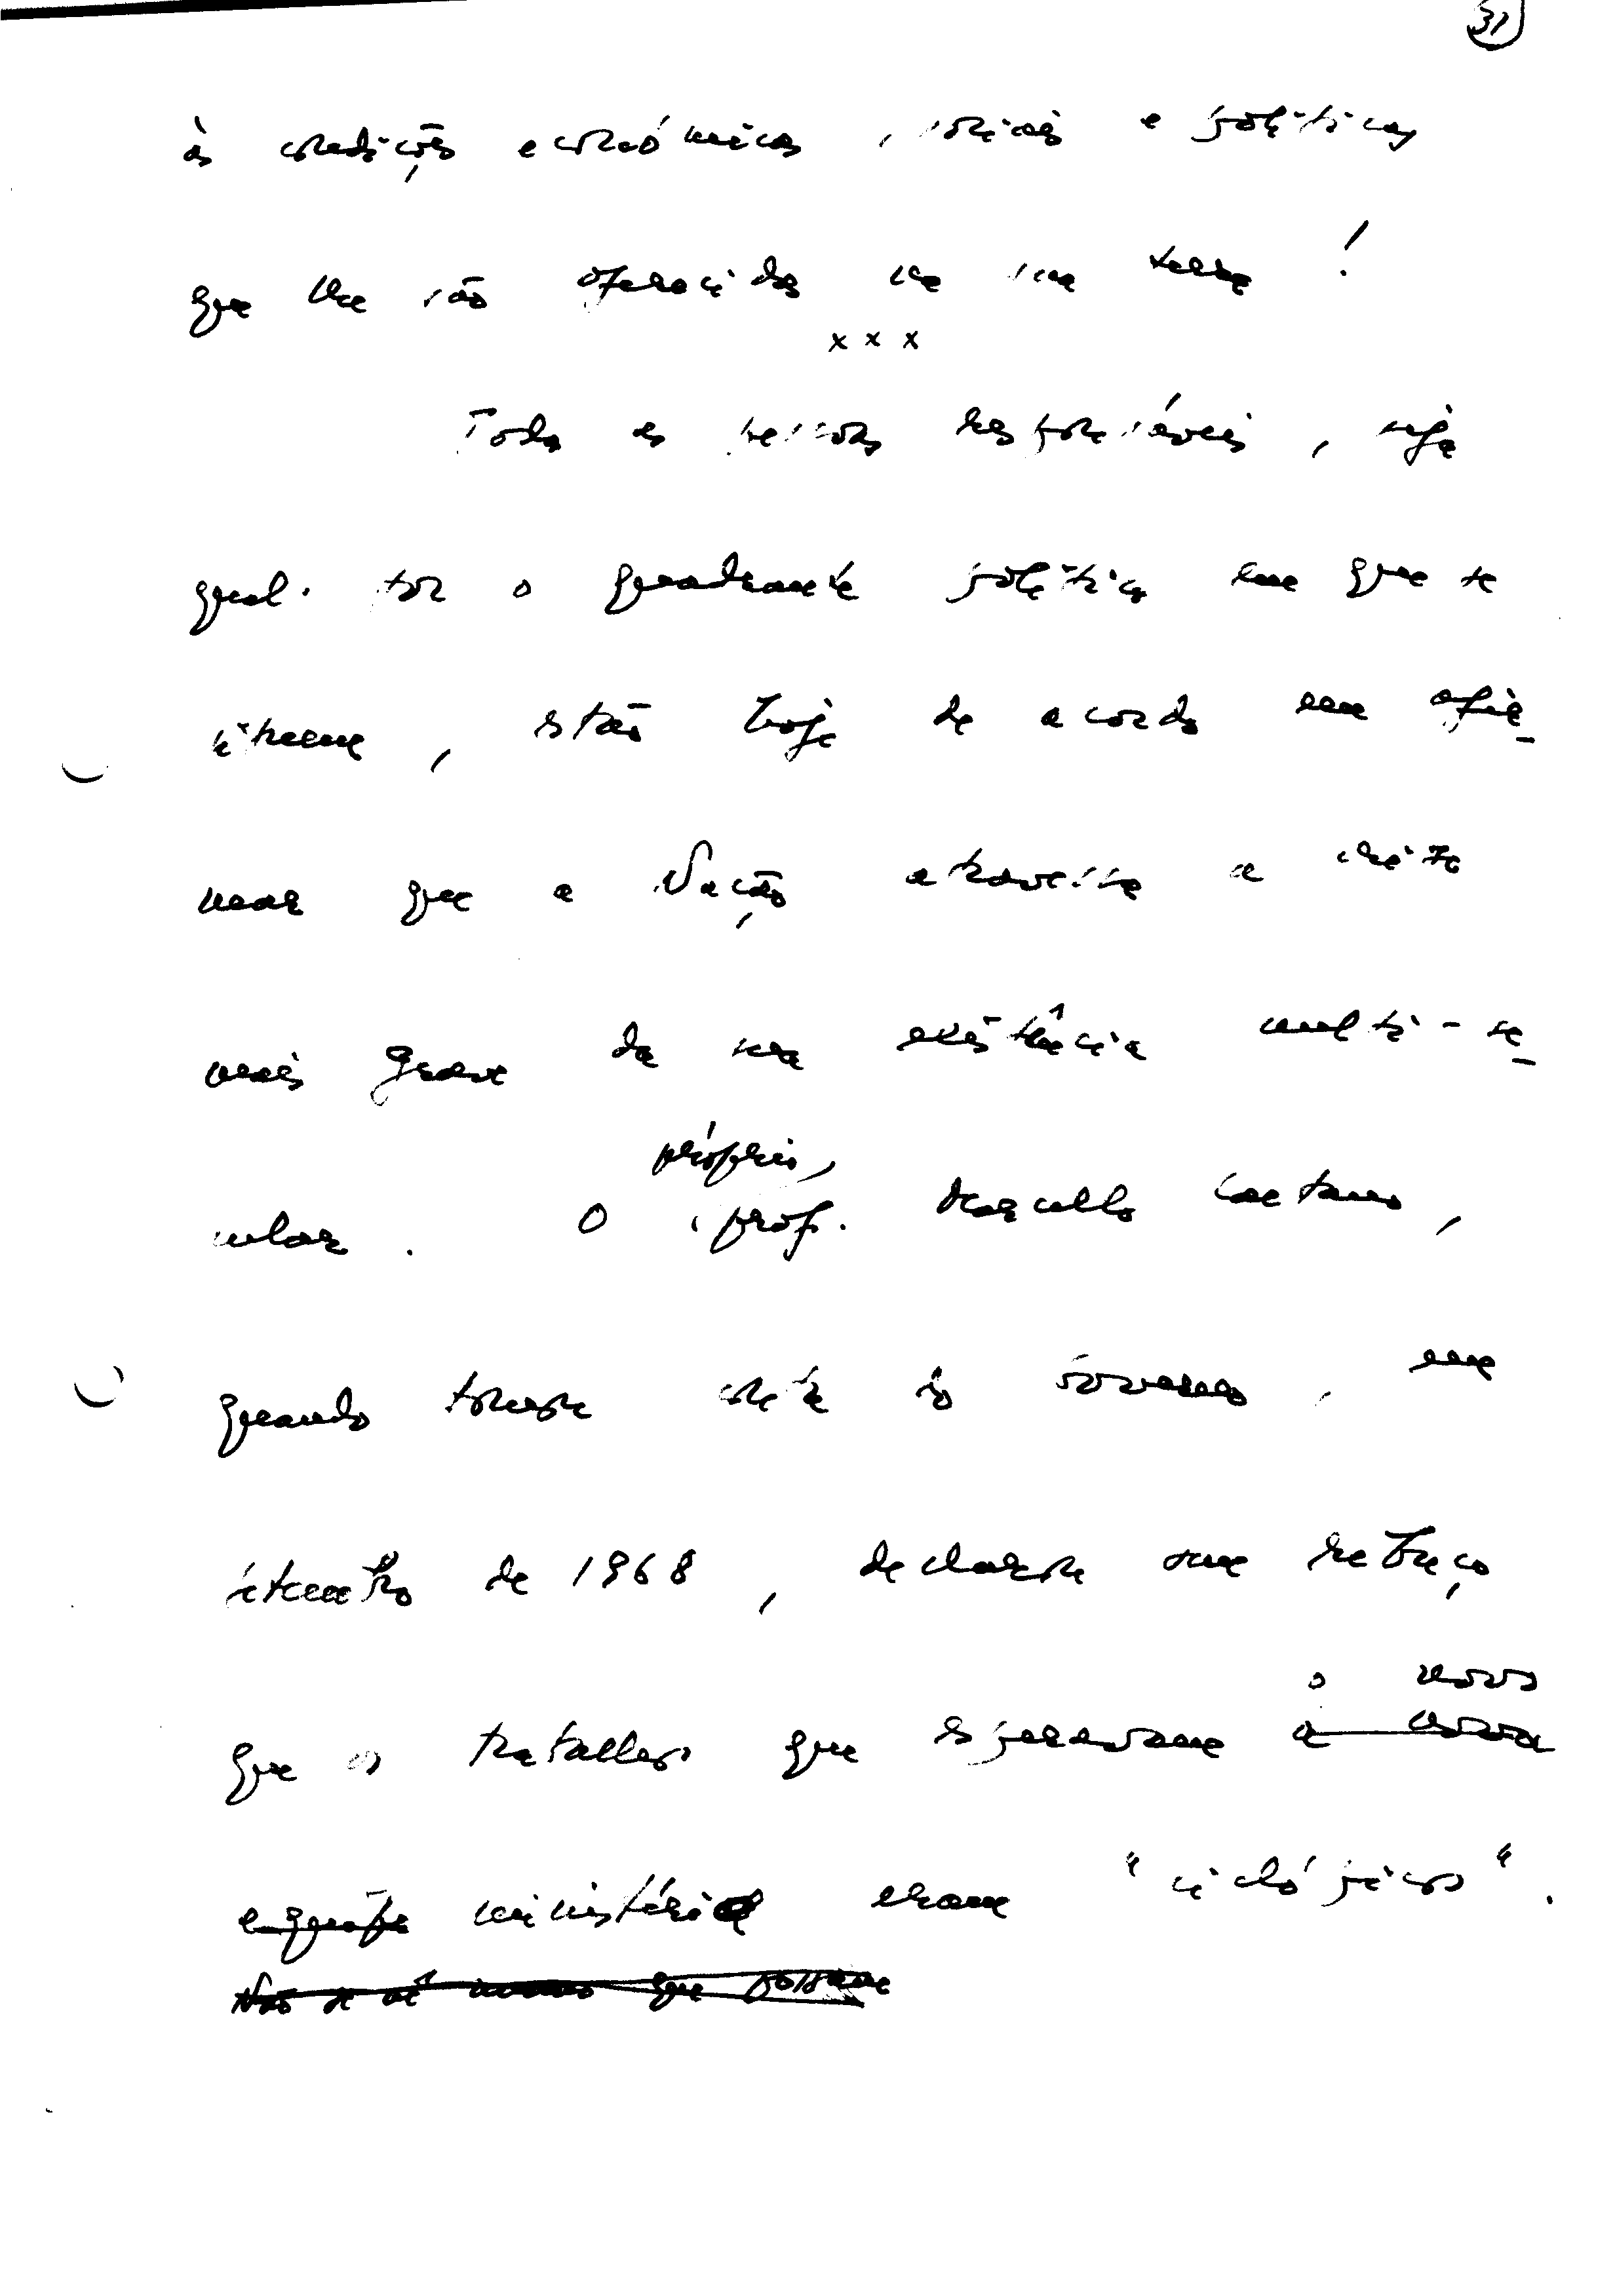 31
às condições económicas, sociais e políticas
que lhe são oferecidas na sua terra!
x x x
Todas as pessoas responsáveis, seja
qual for o quadrante político em que se
situem, estão hoje de acordo em afir-
mar que a Nação atravessa a crise
mais grave da sua existência multi-se-
cular. O próprio prof. Marcello Caetano,
quando tomou conta do Governo, em
setembro de 1968, declarou sem rebuço
que os trabalhos que esperavam o novo
a nova
equipa ministério eram "ciclópicos".
Não se vê mesmo que possam